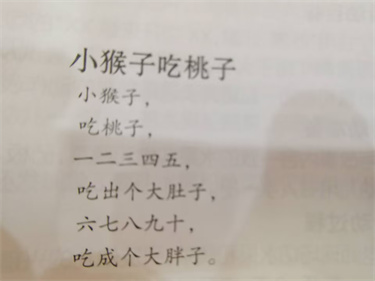 小猴子吃桃子
小猴子，
吃桃子，
一二三四五，
吃出个大肚子，
六七八九十，
吃成个大胖子。